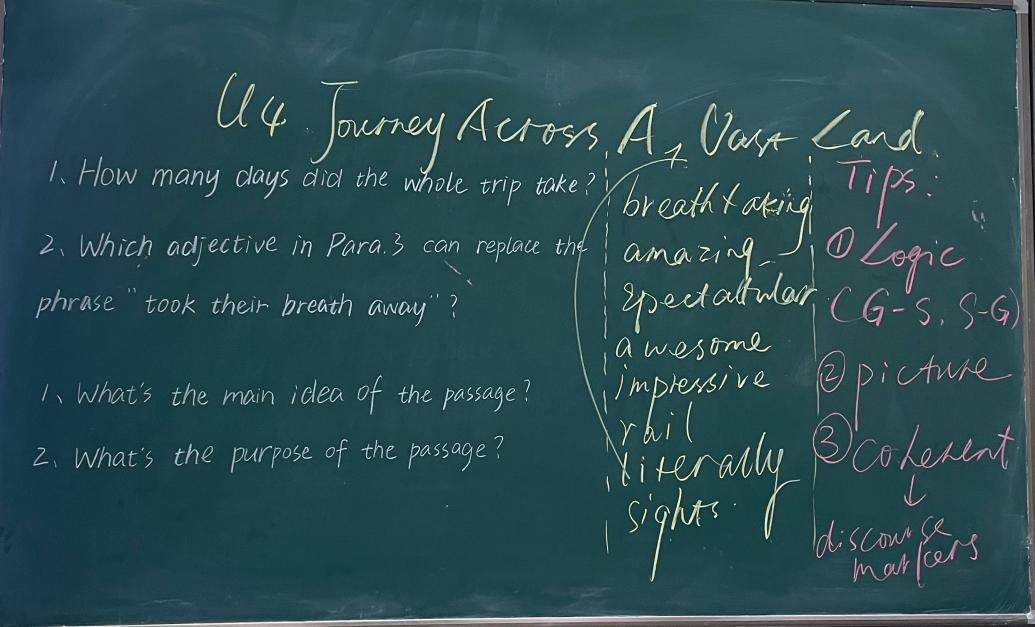 U4 Journey Across A Vast Land
1、How many days did the whole trip take?
2、Which adjective in Para.3 can replace the
phrase "took their breath away"?
1、What's the main idea of the passage?
2、What's the purpose of the passage?
breathtaking
amazing
awesome
impressive
rail
literally
sights
Tips:
①Logic
(G-S, S-G)
②picture
③coherent
↓
discourse
markers